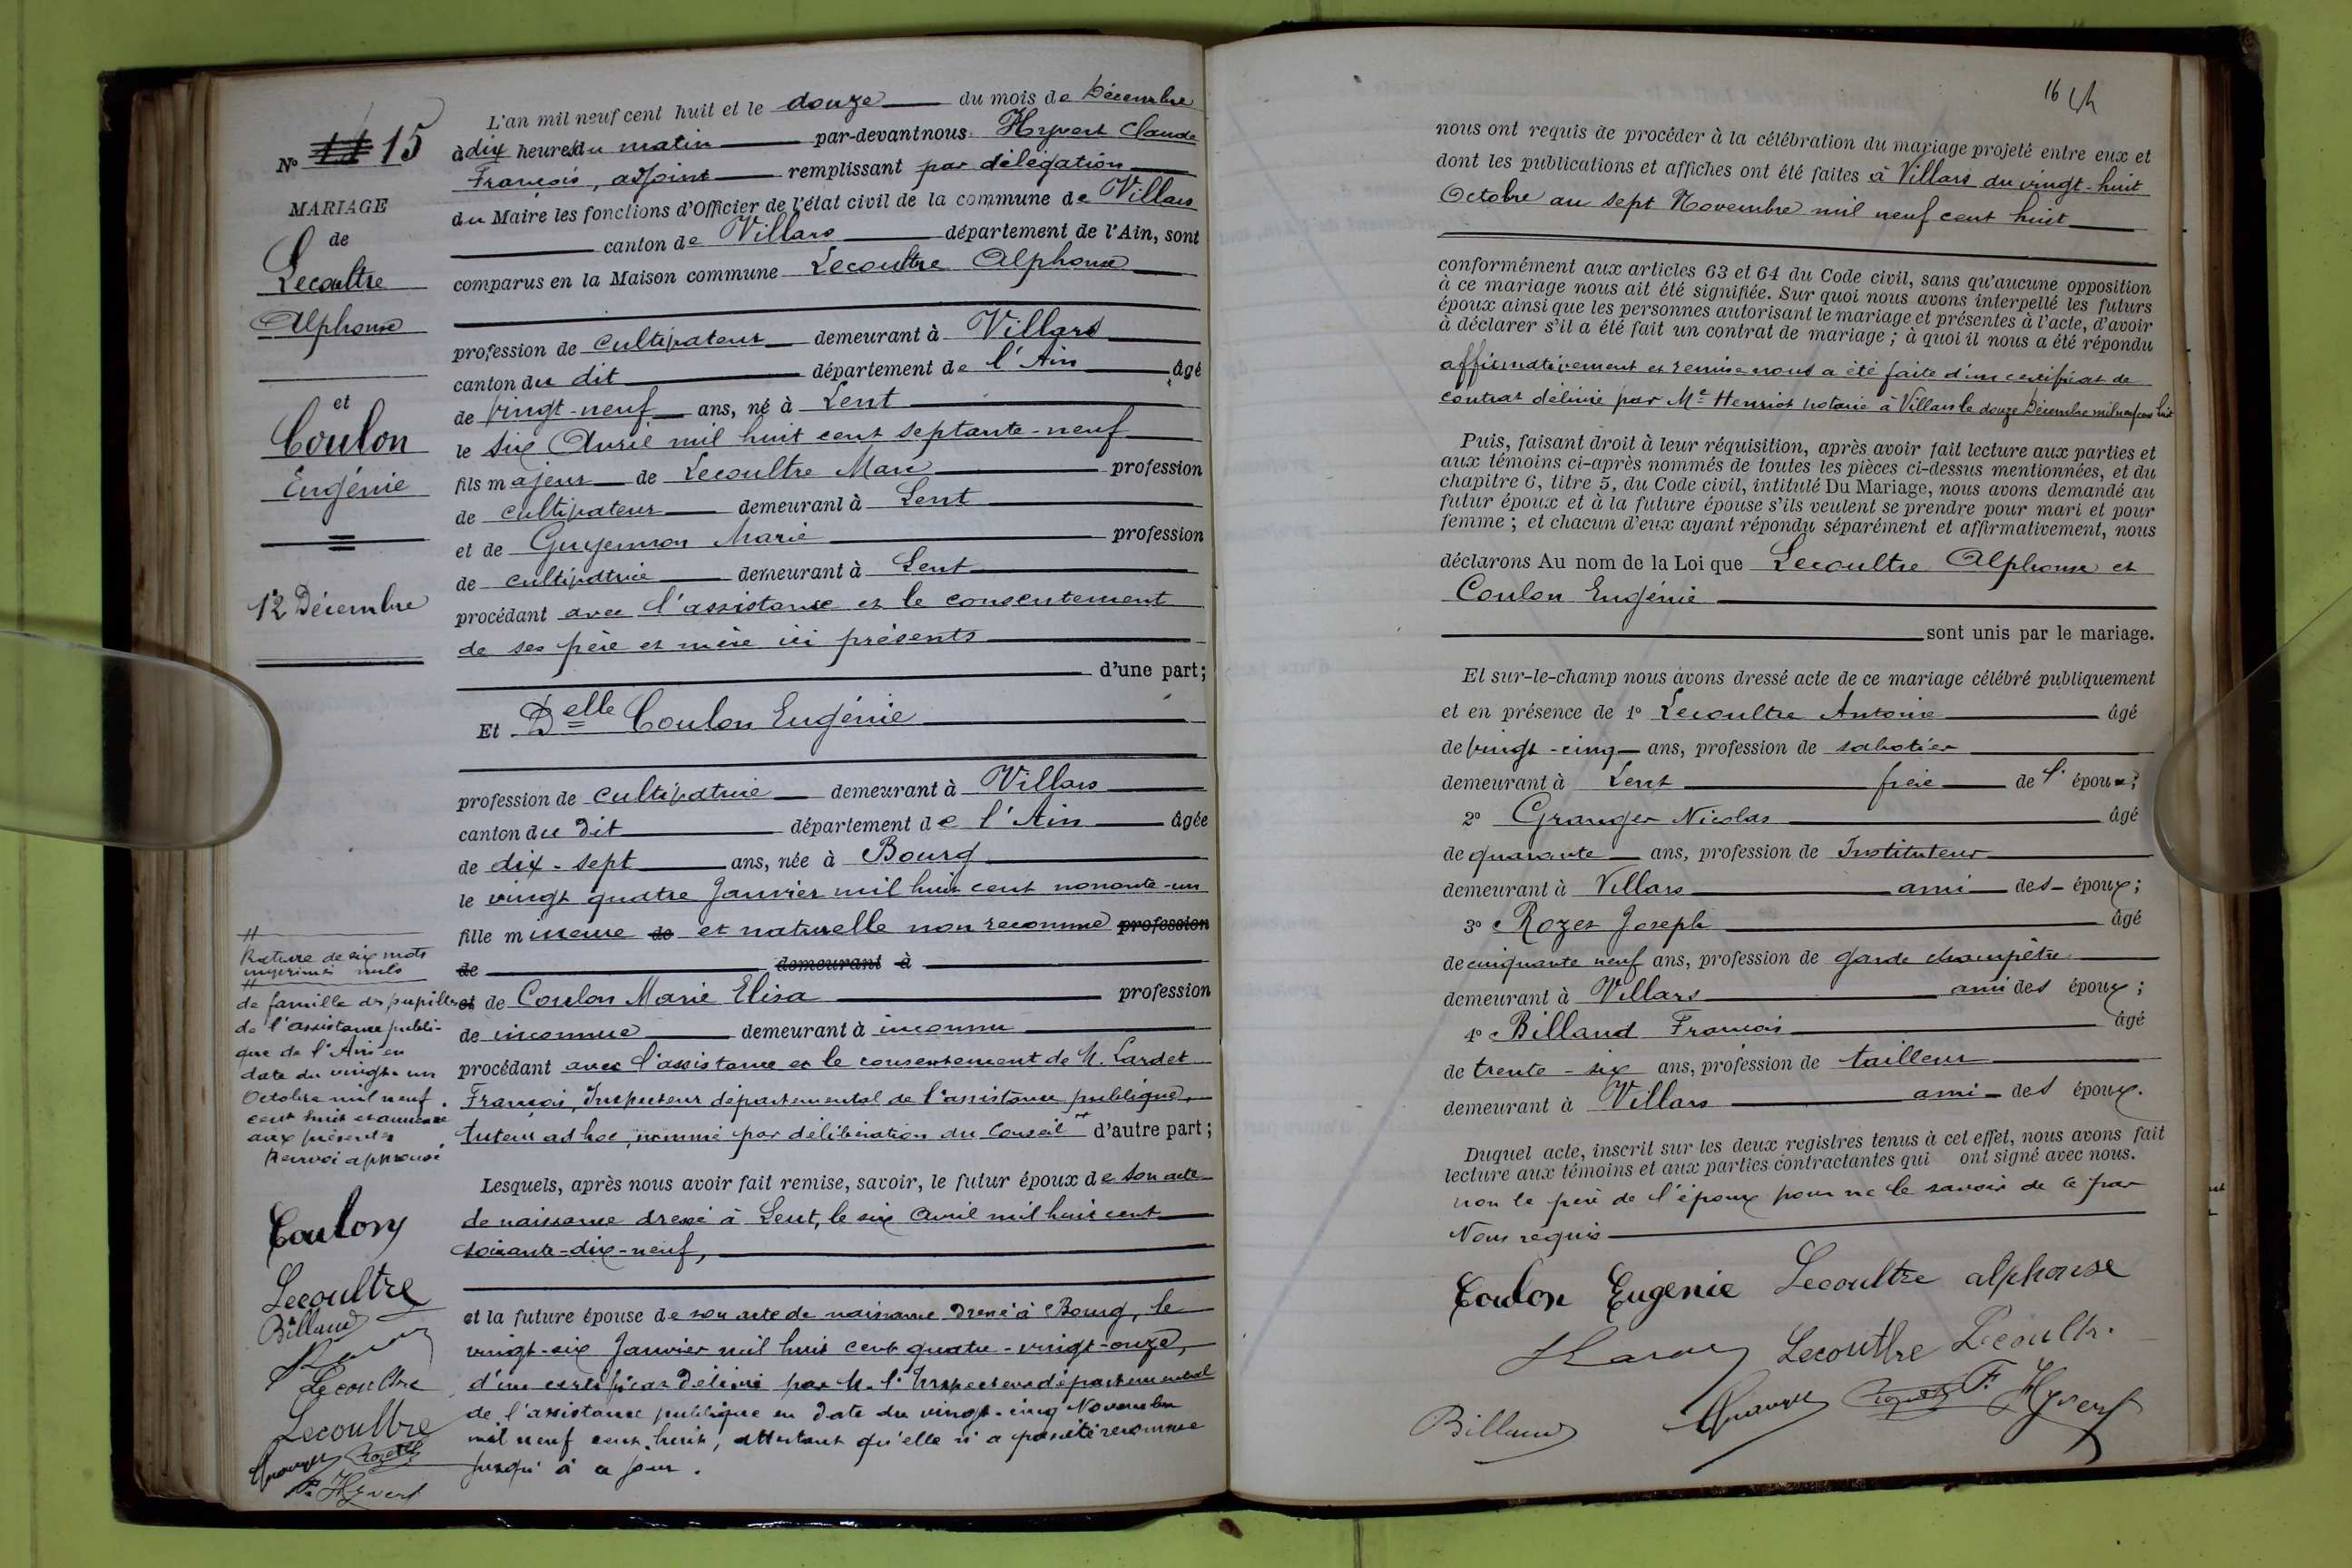 N° 14 15
MARIAGE
de
Lecoultre
Alphonse
et
Coulon
Eugénie
12 Décembre
L'an mil neuf cent huit et le douze du mois de Décembre
à dix heures du matin par-devant nous Hyvert Claude
François, adjoint remplissant par délégation
du Maire les fonctions d'Officier de l'état civil de la commune de Villars
canton de Villars département de l'Ain, sont
comparus en la Maison commune Lecoultre Alphonse
profession de cultivateur demeurant à Villars
canton du dit département de l'Ain âgé
de vingt-neuf ans, né à Lent
le six Avril mil huit cent septante-neuf
fils majeur de Lecoultre Marc profession
de cultivateur demeurant à Lent
et de Guyennon Marie profession
de cultivatrice demeurant à Lent
procédant avec l'assistance et le consentement
de ses père et mère ici présents
d'une part;
Et Delle Coulon Eugénie
profession de cultivatrice demeurant à Villars
canton du dit département de l'Ain âgée
de dix-sept ans, née à Bourg
le vingt quatre Janvier mil huit cent nonante-un
fille mineure de et naturelle non reconnue profession
de demeurant à
et de Coulon Marie Elisa profession
de inconnue demeurant à inconnu
procédant avec l'assistance et le consentement de M. Lardet
François, Inspecteur départemental de l'assistance publique,
tuteur ad hoc, nommé par délibération du Conseil # d'autre part;
# Rature de six mots
imprimés nuls
# de famille des pupilles
de l'assistance publi-
que de l'Ain en
date du vingt-un
Octobre mil neuf
cent huit et annexée
aux présentes
Renvoi approuvé
Coulon
Lecoultre
Billaud
Lecoultre
Lecoultre
Granger Rozet
F. Hyvert
Lesquels, après nous avoir fait remise, savoir, le futur époux de son acte
de naissance dressé à Lent, le six Avril mil huit cent
soixante-dix-neuf,
et la future épouse de son acte de naissance dressé à Bourg, le
vingt-six Janvier mil huit cent quatre-vingt-onze,
d'un certificat délivré par M. l'Inspecteur départemental
de l'assistance publique en date du vingt-cinq Novembre
mil neuf cent huit, attestant qu'elle n'a pas été reconnue
jusqu'à ce jour.
16
nous ont requis de procéder à la célébration du mariage projeté entre eux et
dont les publications et affiches ont été faites à Villars du vingt-huit
Octobre au sept Novembre mil neuf cent huit
conformément aux articles 63 et 64 du Code civil, sans qu'aucune opposition
à ce mariage nous ait été signifiée. Sur quoi nous avons interpellé les futurs
époux ainsi que les personnes autorisant le mariage et présentes à l'acte, d'avoir
à déclarer s'il a été fait un contrat de mariage ; à quoi il nous a été répondu
affirmativement et remise nous a été faite d'un certificat de
contrat délivré par Me Henriot notaire à Villars le douze Décembre mil neuf cent huit
Puis, faisant droit à leur réquisition, après avoir fait lecture aux parties et
aux témoins ci-après nommés de toutes les pièces ci-dessus mentionnées, et du
chapitre 6, titre 5, du Code civil, intitulé Du Mariage, nous avons demandé au
futur époux et à la future épouse s'ils veulent se prendre pour mari et pour
femme ; et chacun d'eux ayant répondu séparément et affirmativement, nous
déclarons Au nom de la Loi que Lecoultre Alphonse et
Coulon Eugénie
sont unis par le mariage.
Et sur-le-champ nous avons dressé acte de ce mariage célébré publiquement
et en présence de 1° Lecoultre Antoine âgé
de vingt-cinq ans, profession de sabotier
demeurant à Lent frère de l' époux;
2° Granger Nicolas âgé
de quarante ans, profession de Instituteur
demeurant à Villars ami des époux;
3° Rozet Joseph âgé
de cinquante neuf ans, profession de garde champêtre
demeurant à Villars ami des époux;
4° Billaud François âgé
de trente-six ans, profession de tailleur
demeurant à Villars ami des époux.
Duquel acte, inscrit sur les deux registres tenus à cet effet, nous avons fait
lecture aux témoins et aux parties contractantes qui ont signé avec nous.
non le père de l'époux pour ne le savoir de ce par
Nous requis
Coulon Eugenie Lecoultre alphonse
Lecoultre Lecoultr.
Billaud Granger Rozet F. Hyvert